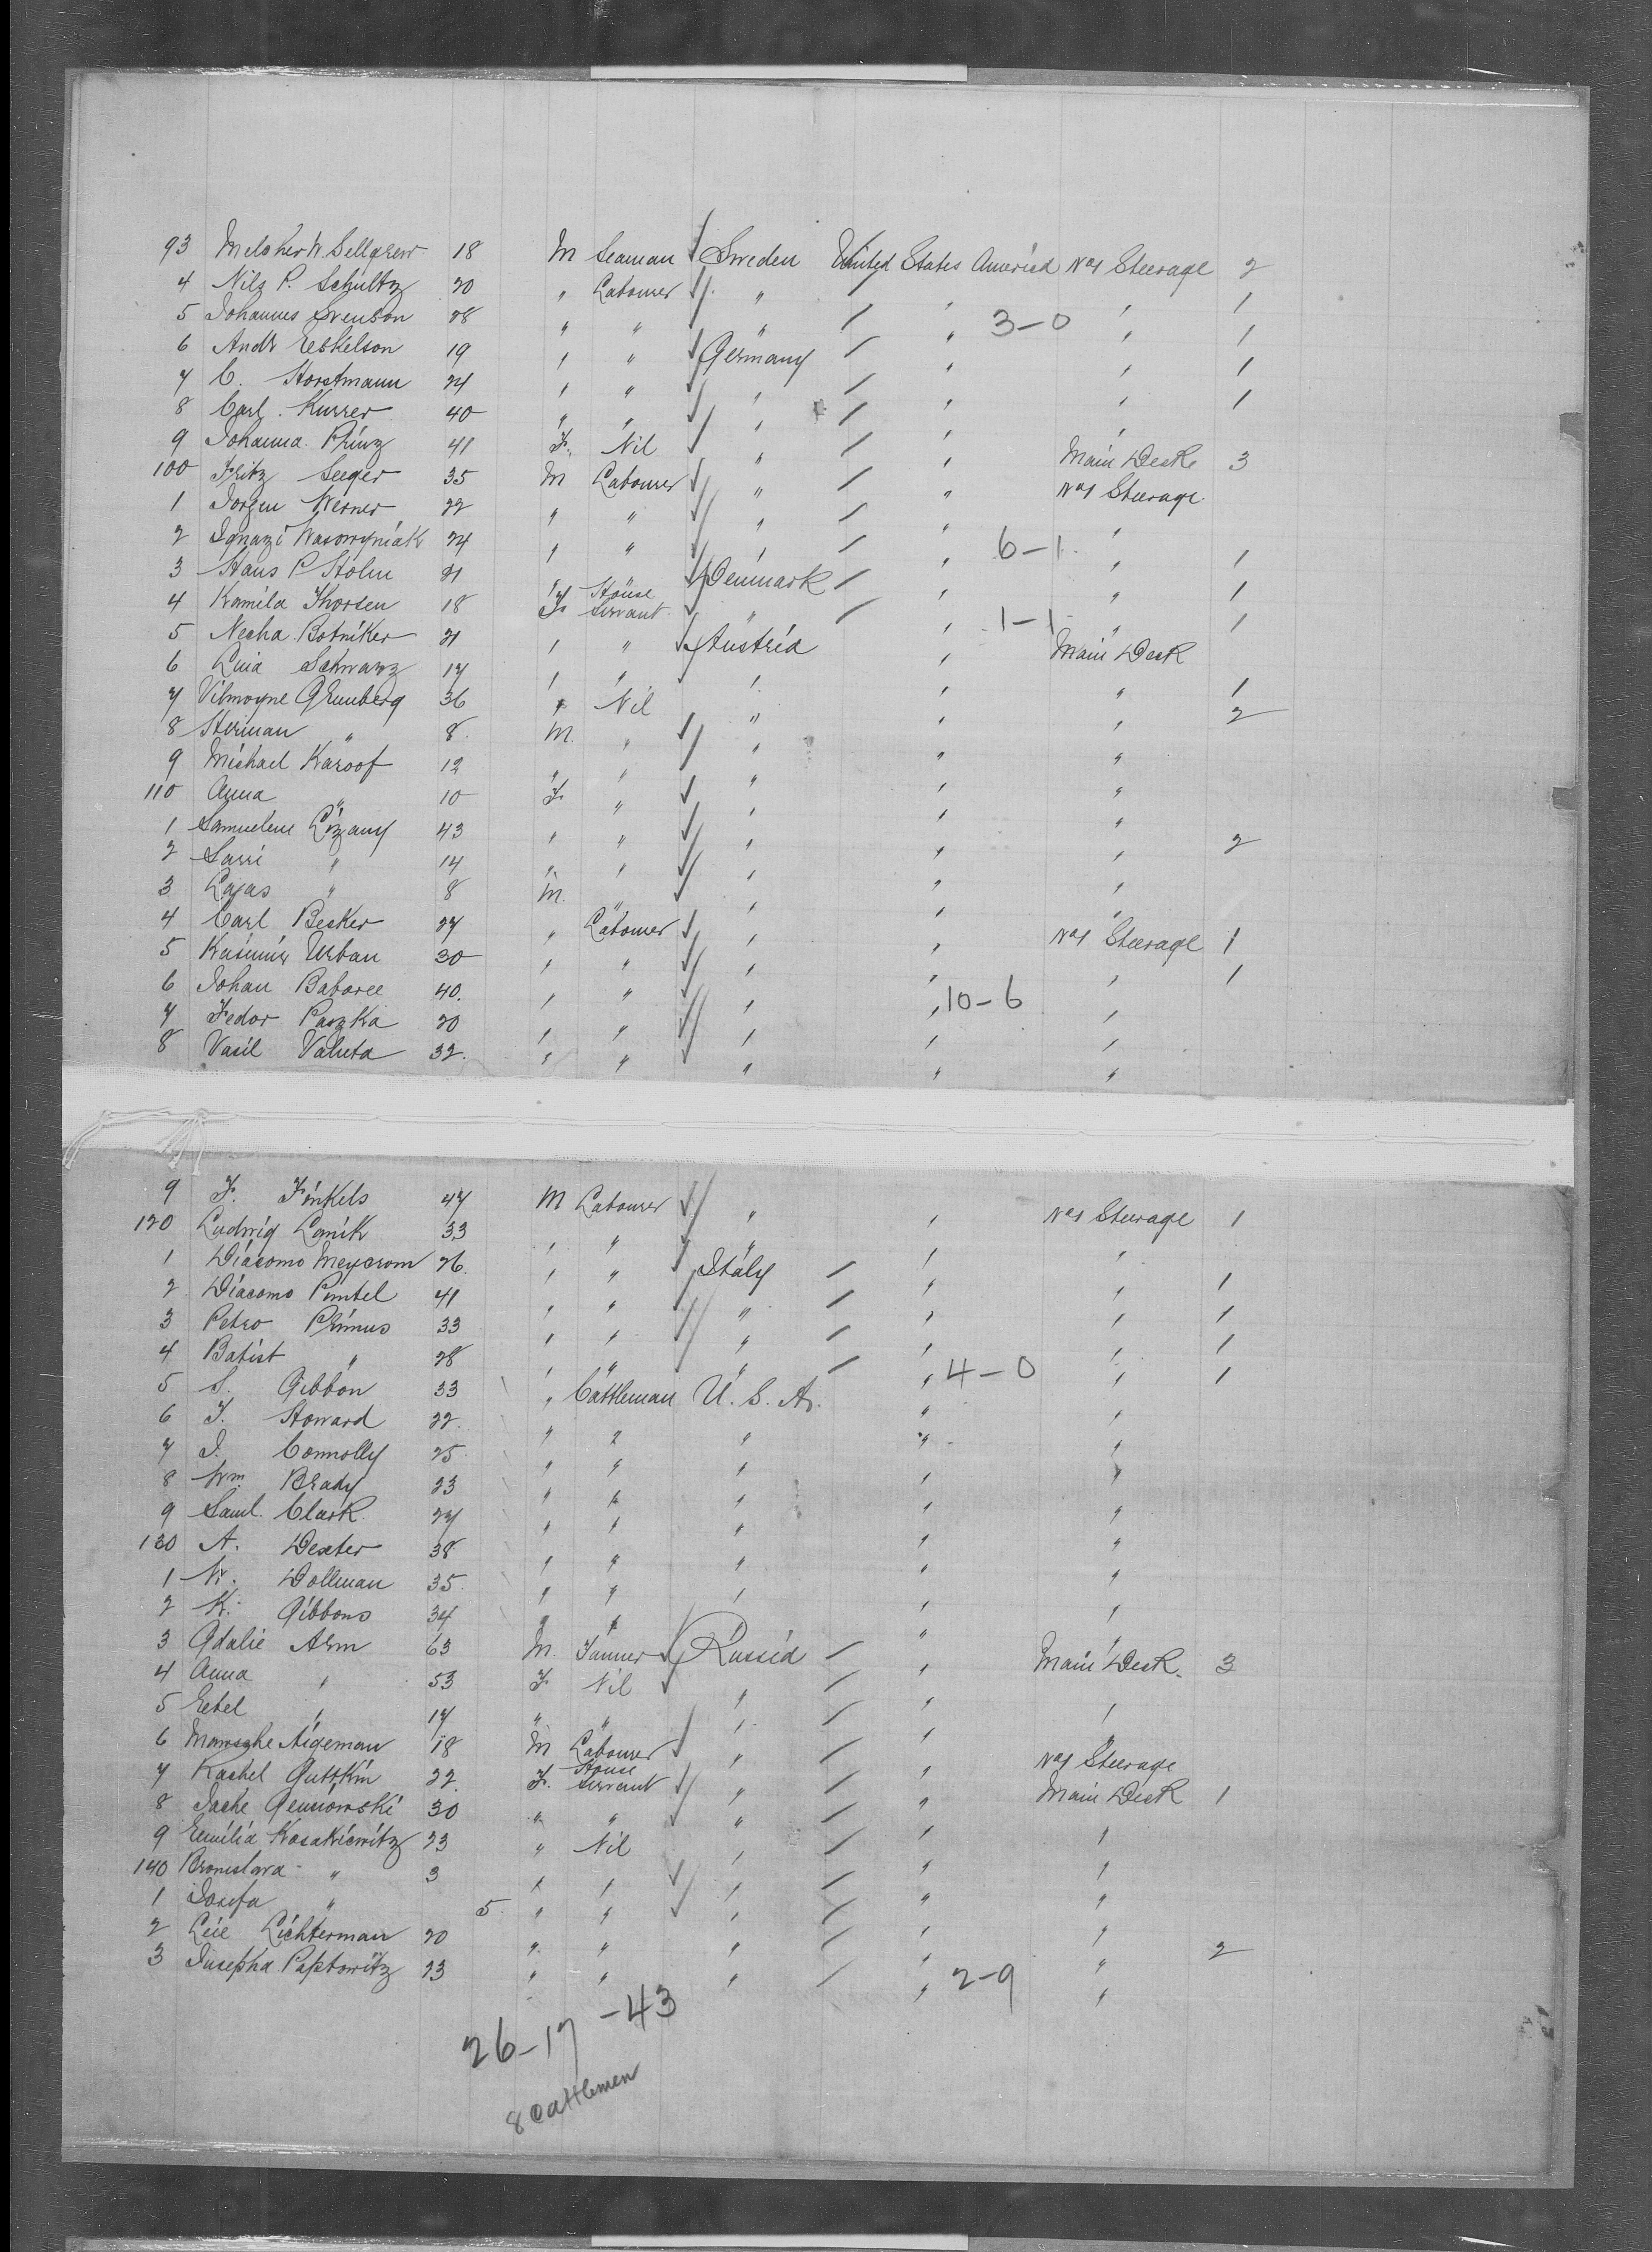 93 Melcher W. Sellgren 18 M Seaman Sweden United States America No 1 Steerage 2
4 Nils P. Schultz 20 " Labourer " " " 1
5 Johannes Svenson 28 " " " " 3-0 " 1
6 Andr Eskelson 19 " " Germany " " 1
7 C. Horstmann 24 " " " " " 1
8 Carl Kurrer 40 " " " " "
9 Johanna Prinz 41 F. Nil " " Main Deck 3
100 Fritz Seeger 35 M Labourer " " No 1 Steerage
1 Jorgen Werner 22 " " " " "
2 Ignazi 24 " " " " 6-1 " 1
3 Hans P Holm 21 " " Denmark " " 1
4 Kamila Thorsen 18 F House Servant " " 1-1 " 1
5 Necha Botniker 21 " " Austria " Main Deck
6 Luia Schwarz 17 " " " " " 1
7 Vilmoyne Grunberg 36 " Nil " " " 2
8 Herman " 8 M. " " " "
9 Michael Karoof 12 " " " " "
110 Anna " 10 F " " " "
1 Samuelene Lizany 43 " " " " " 2
2 Sarri " 14 " " " " "
3 Lajas " 8 M. " " " "
4 Carl Becker 27 " Labourer " " No 1 Steerage 1
5 Kasimir Urban 30 " " " " " 1
6 Johan Baboree 40. " " " " 10-6 "
7 Fedor Paszka 20 " " " " "
8 Vasil Valuta 32. " " " " "
9 F. Finkels 47 M Labourer " " No 1 Steerage 1
120 Ludwig Lanik 33 " " " " "
1 Diacomo Meycrom 26 " " Italy " " 1
2 Diacomo Pimtel 41 " " " " " 1
3 Petro Primus 33 " " " " " 1
4 Batist " 28 " " " " 4-0 " 1
5 S. Gibbon 33 " Cattleman U. S. A. " "
6 T. Howard 22. " " " " "
7 J. Connolly 25 " " " " "
8 Wm. Brady 23 " " " " "
9 Saml. Clark 27 " " " " "
130 A. Dexter 38 " " " " "
1 W. Dollman 35. " " " " "
2 K. Gibbons 34 " " " " "
3 Gdalie Alm 63 M. Tanner Russia " Main Deck. 3
4 Anna " 53 F Nil " " "
5 Ettel " 17 " " " " "
6 Mawszhe Aigeman 18 M Labourer " " No 1 Steerage
7 Rachel Guttkin 22. F. House Servant " " Main Deck 1
8 Jache Gensiowski 30 " " " " "
9 Emilia Kosakiewitz 23 " Nil " " "
140 Bronislava " 3 " " " " "
1 Josefa " 5 " " " " "
2 Leie Lichterman 20 " " " " " 2
3 Josepha Paptowitz 23 " " " " 2-9 "
26-17-43
8 Cattlemen